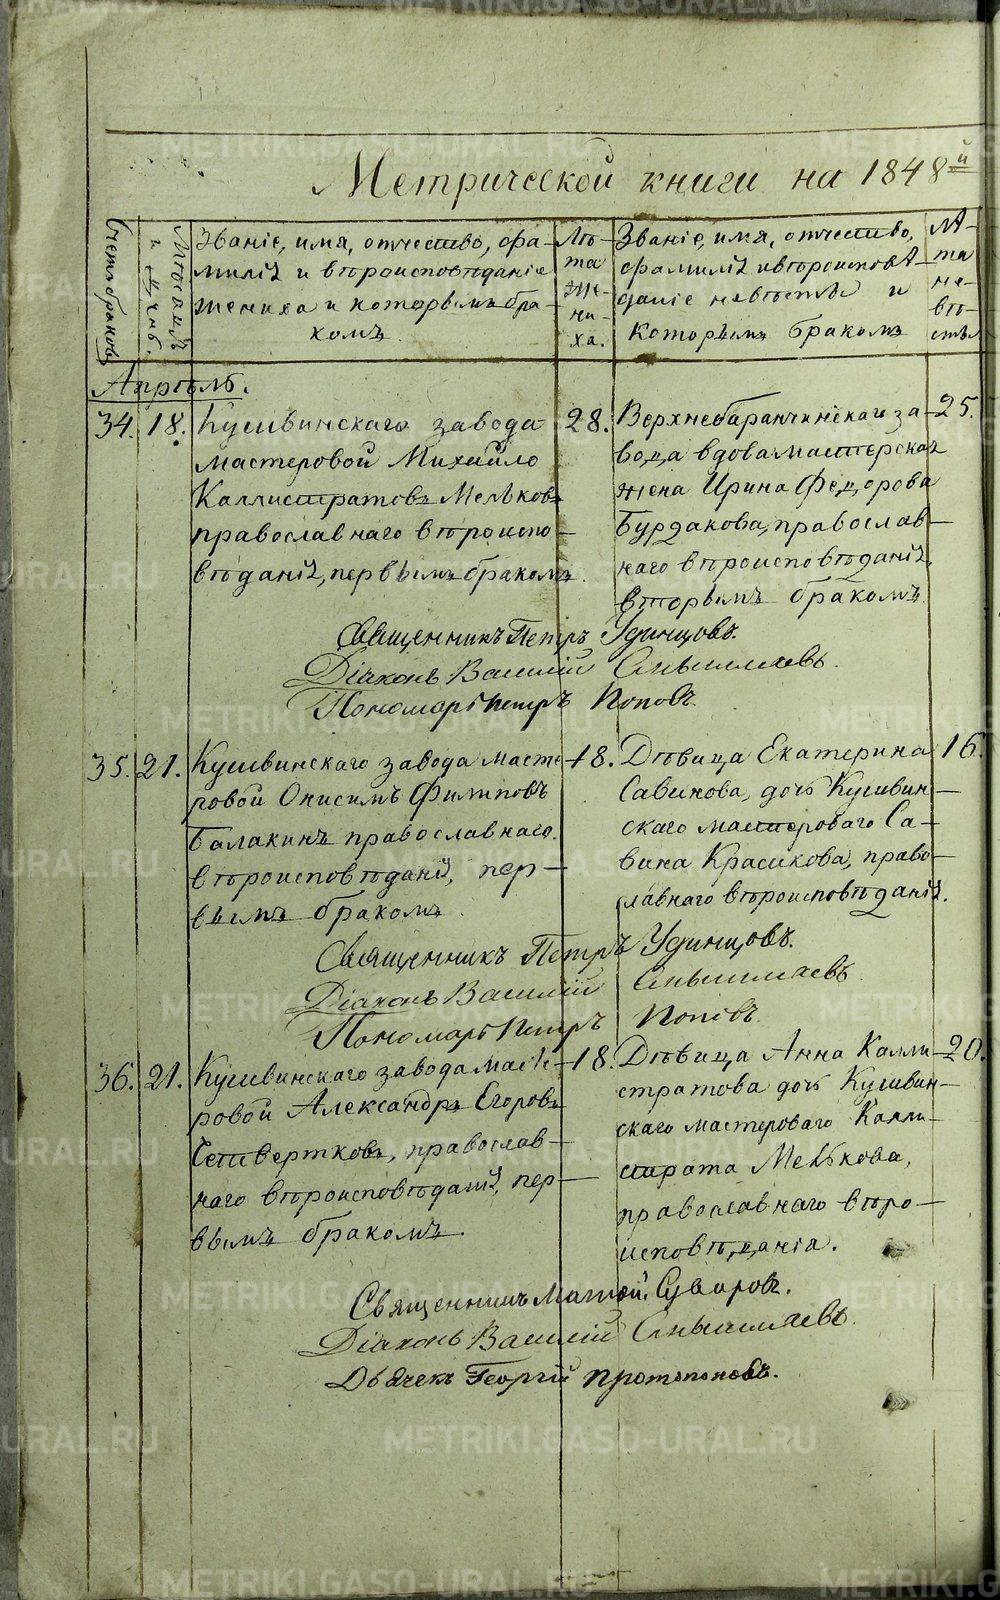 Метрической книги на 1848й
Счетъ браковъ
Мѣсяцъ
и день.
Званіе, имя, отчество, фа-
милія и вѣроисповѣданіе
жениха и которымъ бра-
комъ.
Лѣ-
та
же-
ни-
ха.
Званіе, имя, отчество,
фамилія и вѣроисповѣ-
даніе невѣсты и
которымъ бракомъ
Лѣ-
та
не-
вѣ-
сты
Апрѣль.
34. 18. Кушвинскаго завода
мастеровой Михайло
Каллистратовъ Мельковъ
православнаго вѣроиспо-
вѣданія, первымъ бракомъ.
28.
Верхнебаранчинскаго за-
вода вдова мастерская
жена Ирина Федорова
Бурдакова, православ-
наго вѣроисповѣданія,
вторымъ бракомъ.
25.
Священникъ Петръ Удинцовъ.
Діаконъ Василій
Пономарь Петръ Поповъ.
35. 21. Кушвинскаго завода масте-
ровой Онисимъ Филиповъ
Балакинъ православнаго
вѣроисповѣданія, пер-
вымъ бракомъ.
18.
Дѣвица Екатерина
Савинова, дочь Кушвин-
скаго мастероваго Са-
вина Красикова, право-
славнаго вѣроисповѣданія.
16.
Священникъ Петръ Удинцовъ.
Діаконъ Василій
Пономарь Петръ Поповъ
36. 21. Кушвинскаго завода масте-
ровой Александръ Егоровъ
Четвертковъ, православ-
наго вѣроисповѣданія, пер-
вымъ бракомъ.
18.
Дѣвица Анна Калли-
стратова дочь Кушвин-
скаго мастероваго Калли-
страта Мелькова,
православнаго вѣро-
исповѣданія.
20.
Священникъ Матѳей Суворовъ.
Діаконъ Василій
Дьячекъ Георгій Протопоповъ.
METRIKI.GASO-URAL.RU